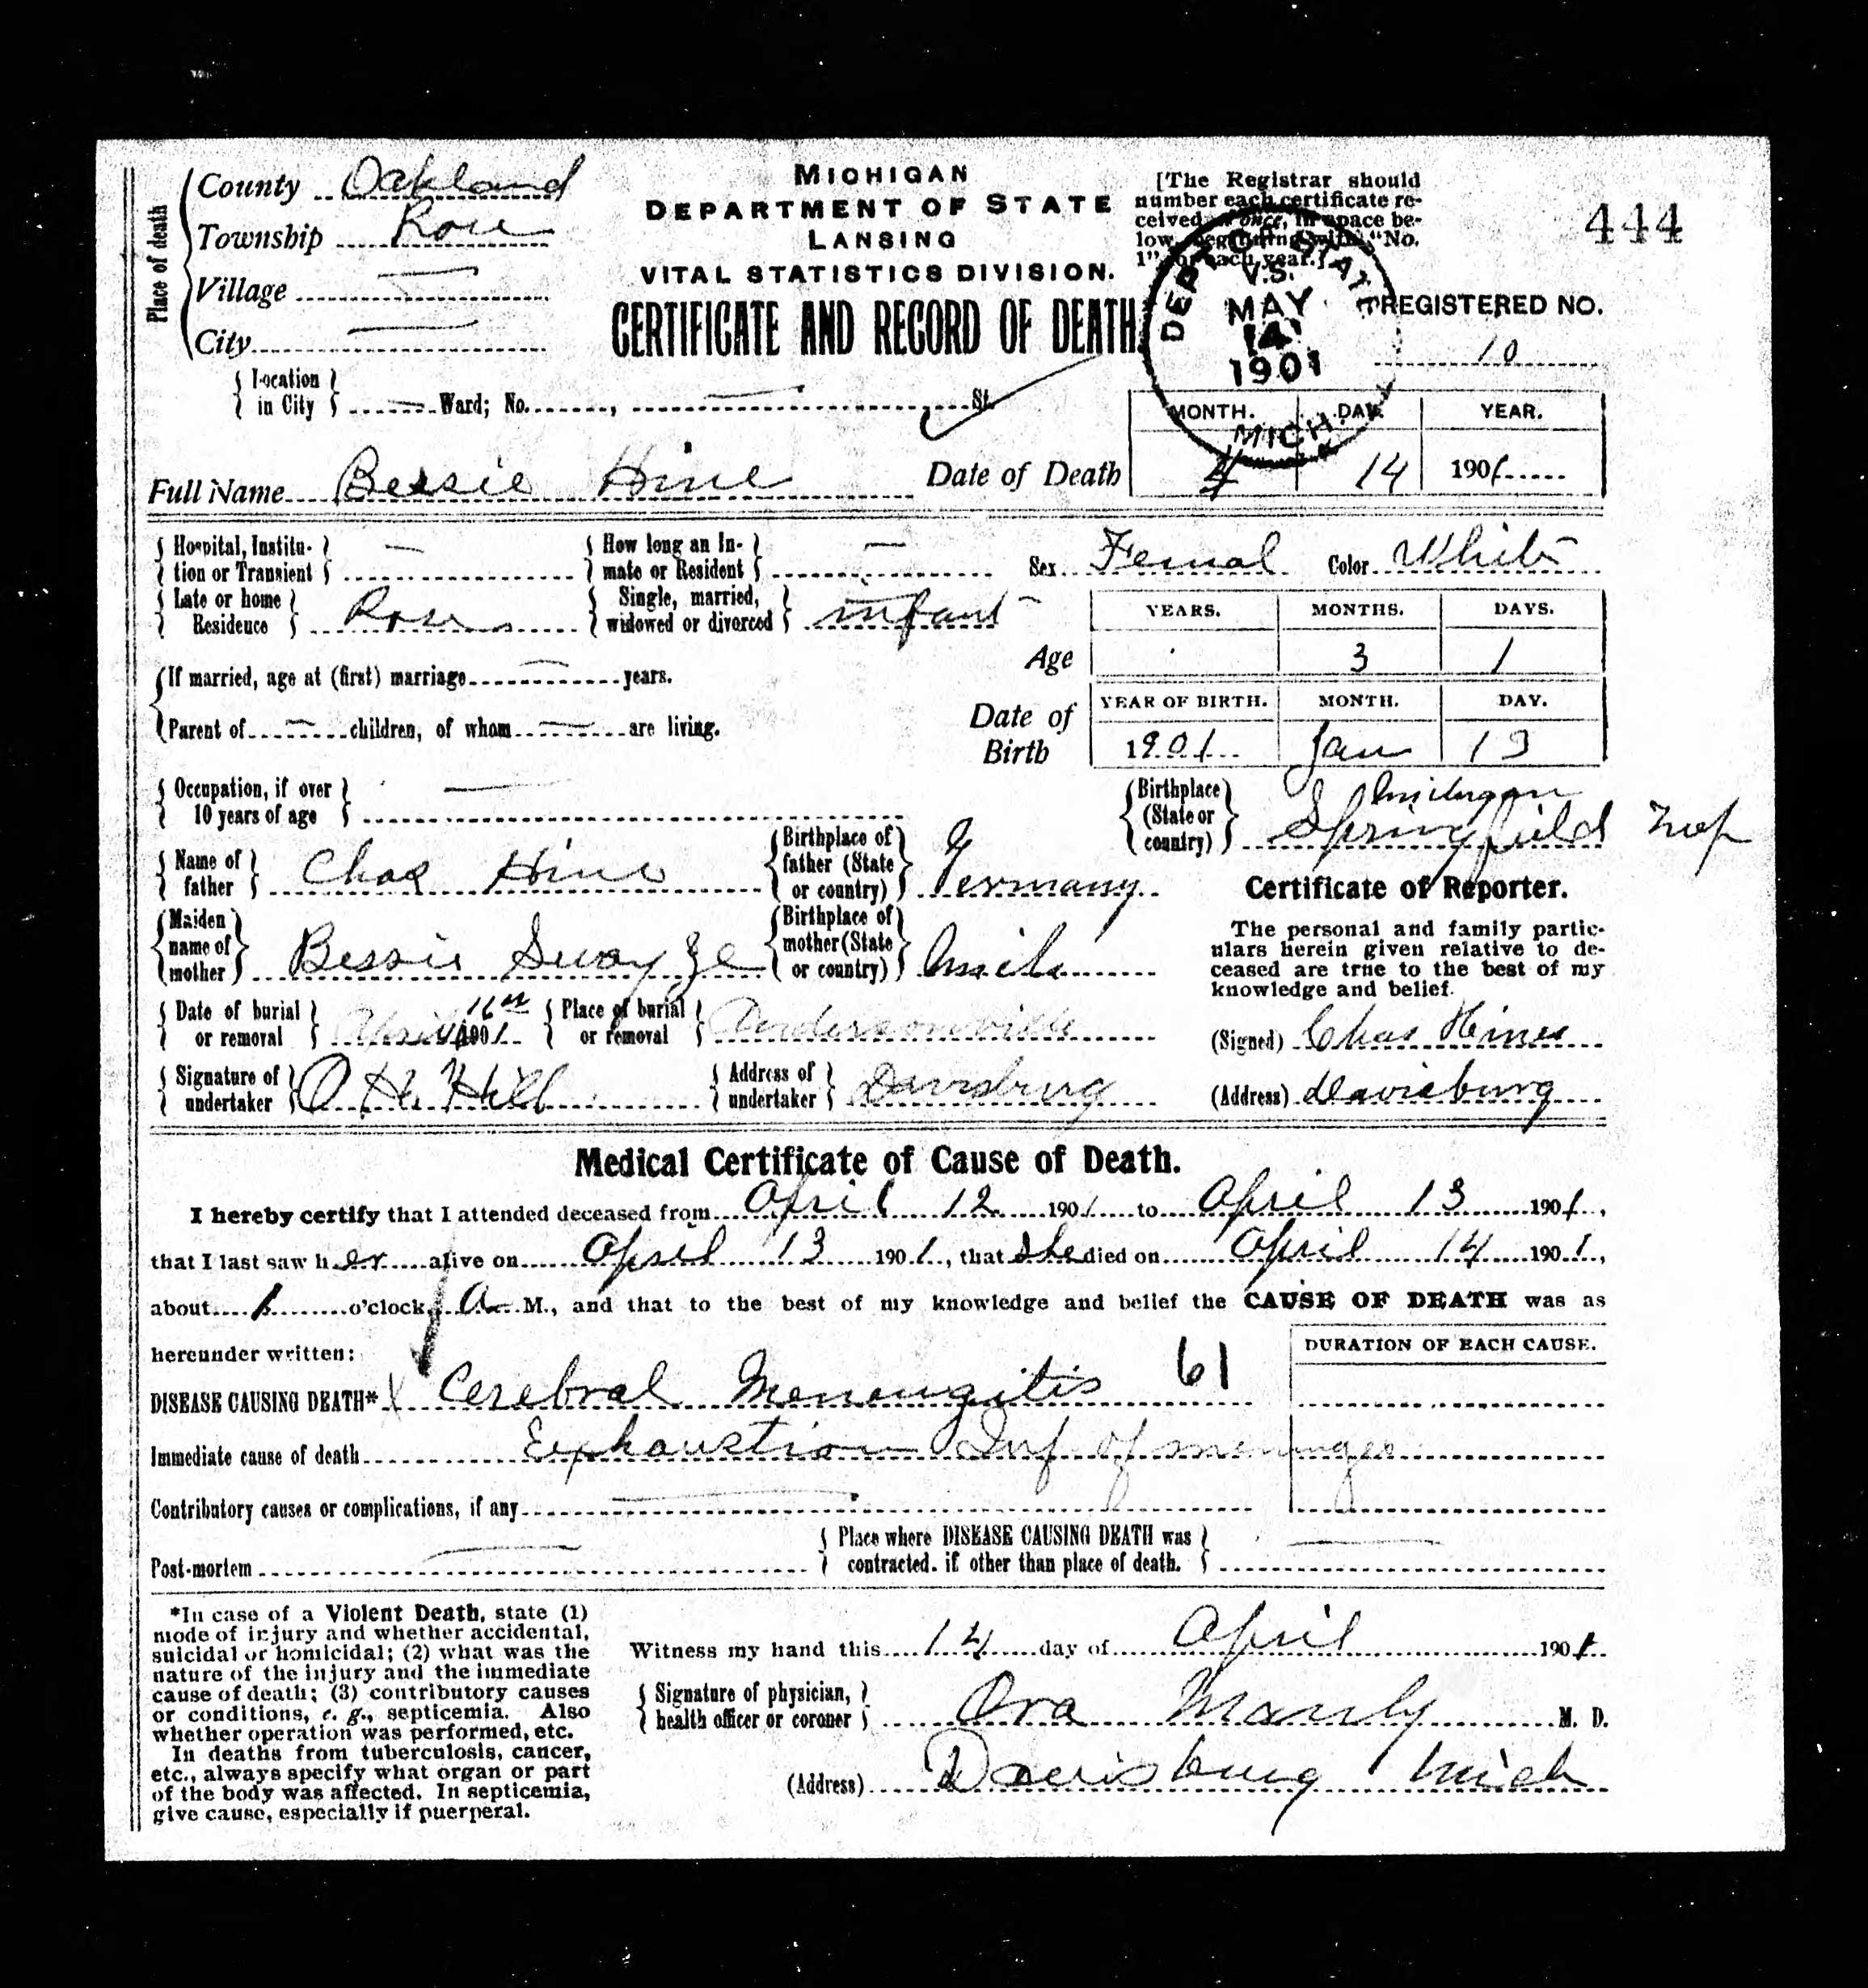 Place of death
County Oakland
Township Rose
Village —
City —
MICHIGAN
DEPARTMENT OF STATE
LANSING
VITAL STATISTICS DIVISION.
CERTIFICATE AND RECORD OF DEATH.
[The Registrar should
number each certificate re-
ceived at once, in space be-
low, beginning with "No.
1" for each year.]
444
DEPT OF STATE
V.S.
MAY
14
1901
MICH.
REGISTERED NO.
10
Location in City — Ward; No. , — St.
MONTH. DAY. YEAR.
Full Name Bessie Hine Date of Death 4 14 1901
Hospital, Institu-tion or Transient — How long an In-mate or Resident — Sex Femal Color White
Late or home Residence Rose Single, married, widowed or divorced infant
YEARS. MONTHS. DAYS.
Age 3 1
If married, age at (first) marriage — years.
YEAR OF BIRTH. MONTH. DAY.
Parent of — children, of whom — are living.
Date of Birth 1901 Jan 13
Occupation, if over 10 years of age —
Birthplace (State or country) Michigan
Springfield Twp
Name of father Chas Hine Birthplace of father (State or country) Germany
Maiden name of mother Bessie Swayze Birthplace of mother (State or country) Mich
Date of burial or removal April 16th 1901 Place of burial or removal Andersonville
Signature of undertaker O. H. Hill Address of undertaker Davisburg
Certificate of Reporter.
The personal and family partic-
ulars herein given relative to de-
ceased are true to the best of my
knowledge and belief.
(Signed) Chas Hines
(Address) Davisburg
Medical Certificate of Cause of Death.
I hereby certify that I attended deceased from April 12 1901 to April 13 1901,
that I last saw her alive on April 13 1901, that she died on April 14 1901,
about 1 o'clock, A M., and that to the best of my knowledge and belief the CAUSE OF DEATH was as
hereunder written:
DURATION OF EACH CAUSE.
DISEASE CAUSING DEATH* X Cerebral Menengitis 61
Immediate cause of death Exhaustion Inf of meninges
Contributory causes or complications, if any —
Post-mortem — Place where DISEASE CAUSING DEATH was contracted. if other than place of death. —
*In case of a Violent Death, state (1)
mode of injury and whether accidental,
suicidal or homicidal; (2) what was the
nature of the injury and the immediate
cause of death; (3) contributory causes
or conditions, e. g., septicemia. Also
whether operation was performed, etc.
In deaths from tuberculosis, cancer,
etc., always specify what organ or part
of the body was affected. In septicemia,
give cause, especially if puerperal.
Witness my hand this 14 day of April 1901
Signature of physician, health officer or coroner Ora Manly M. D.
(Address) Davisburg Mich